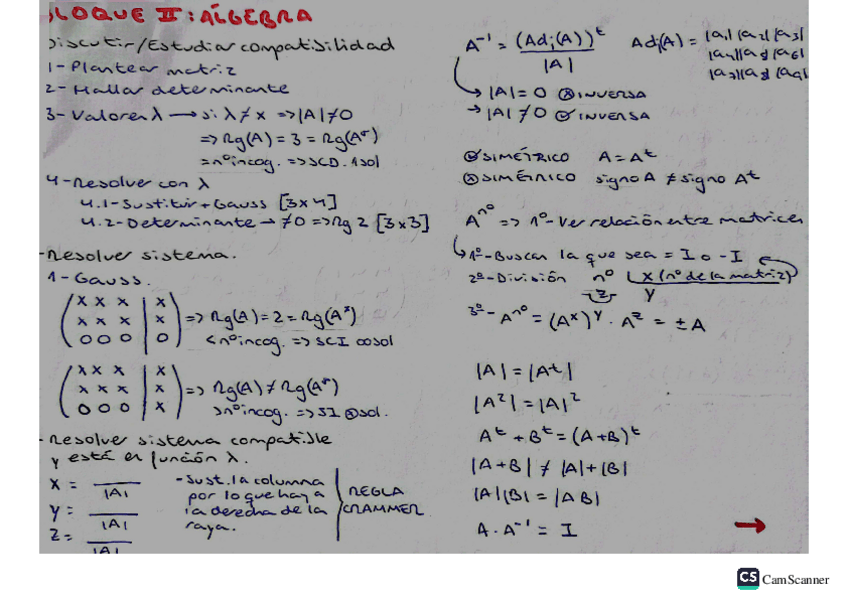 LOQUE II: ÁLGEBRA
Discutir/Estudiar compatibilidad
1- Plantear matriz
2- Hallar determinante
3- Valores λ → si λ ≠ x => |A| ≠ 0
=> Rg(A) = 3 = Rg(A*)
= nº incog. => SCD. 1 sol
4- Resolver con λ
4.1- Sustituir + Gauss [3x4]
4.2- Determinante → ≠0 => Rg 2 [3x3]
- Resolver sistema.
1- Gauss.
( x x x | x )
( x x x | x ) => Rg(A) = 2 = Rg(A*)
( 0 0 0 | 0 ) < nº incog. => SCI ∞ sol
( x x x | x )
( x x x | x ) => Rg(A) ≠ Rg(A*)
( 0 0 0 | x ) > nº incog. => SI ⊗ sol.
- Resolver sistema compatible
y está en función λ.
x = ___ / |A|
y = ___ / |A|
z = ___ / |A|
- Sust. la columna
por lo que hay a
la derecha de la
raya.
REGLA
CRAMMER
A⁻¹ = (Adj(A))ᵗ / |A|
Adj(A) = |a₁| |a₂| |a₃|
|a₄| |a₅| |a₆|
|a₇| |a₈| |a₉|
→ |A| = 0 ⊗ INVERSA
→ |A| ≠ 0 ✓ INVERSA
✓ SIMÉTRICO A = Aᵗ
⊗ SIMÉTRICO signo A ≠ signo Aᵗ
Aⁿº => 1º- Ver relación entre matrices
1º- Buscar la que sea = I o -I
2º- División nº | x (nº de la matriz)
z y
3º- Aⁿº = (Aˣ)ʸ · Aᶻ = ± A
|A| = |Aᵗ|
|A²| = |A|²
Aᵗ + Bᵗ = (A+B)ᵗ
|A+B| ≠ |A|+|B|
|A||B| = |AB|
A · A⁻¹ = I
CS CamScanner